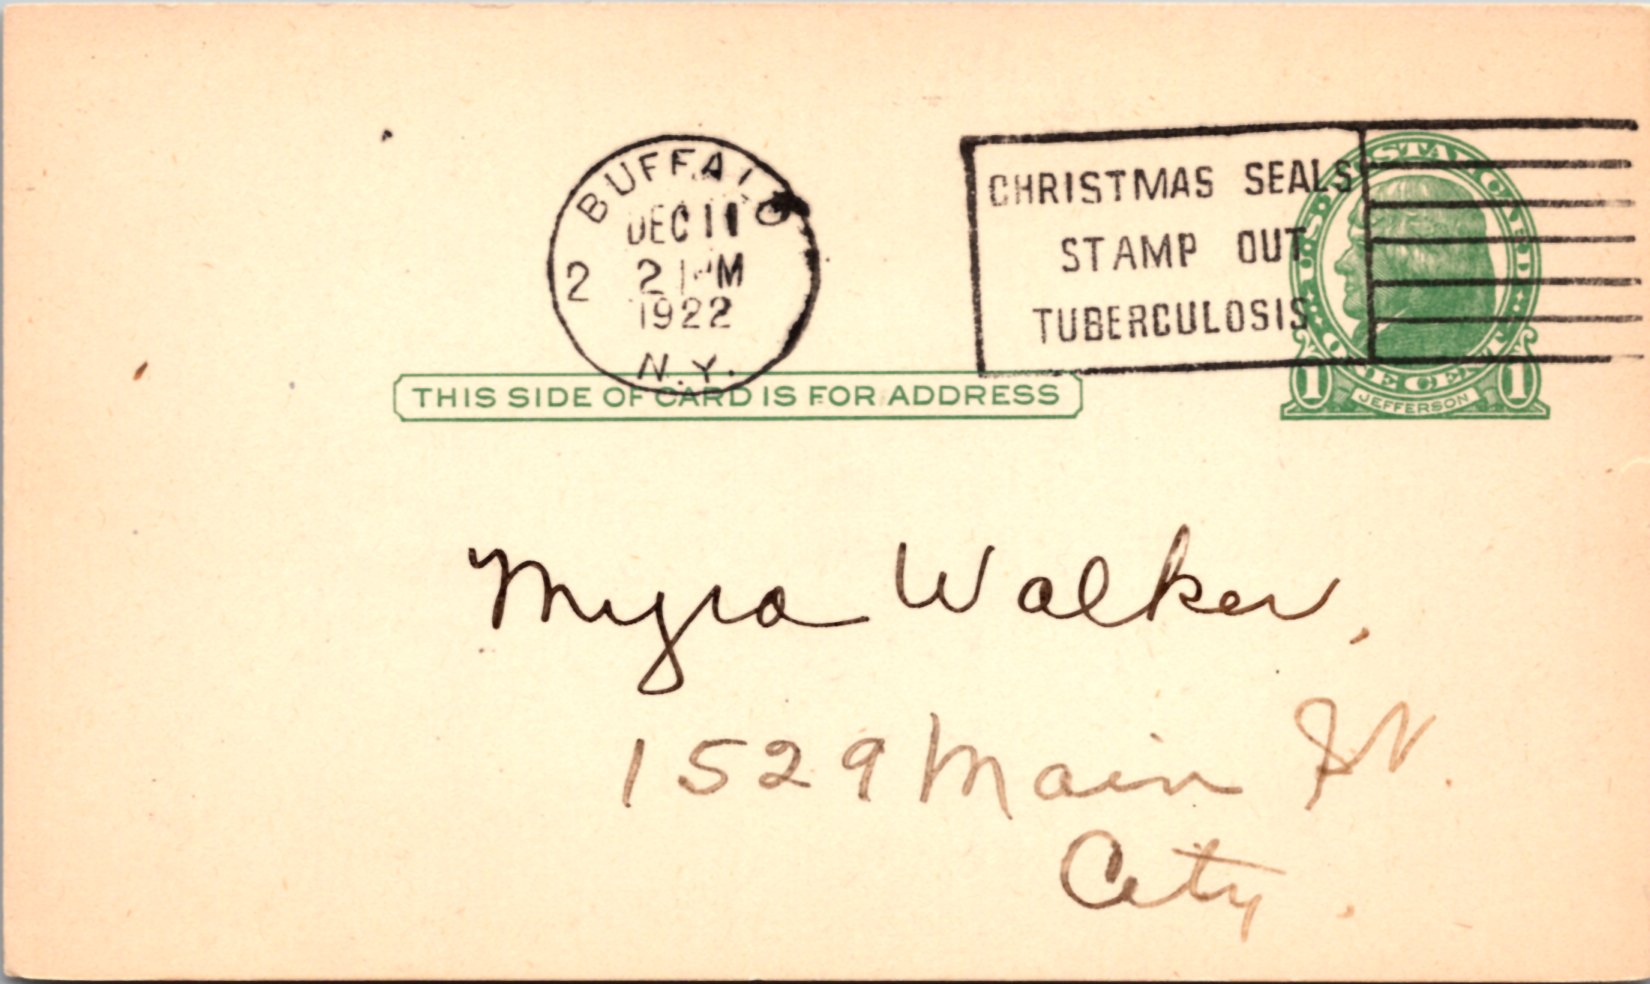 BUFFALO
DEC 11
2 2 PM
1922
N.Y.
CHRISTMAS SEALS
STAMP OUT
TUBERCULOSIS
U.S. POSTAL CARD
ONE CENT
1 JEFFERSON 1
THIS SIDE OF CARD IS FOR ADDRESS
Myra Walker,
1529 Main St.
City.